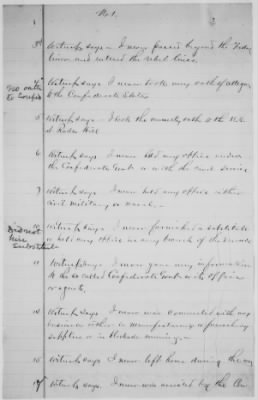 No 1.
2
3 Witness says - I never passed beyond the Federal
lines and entered the rebel lines.
No oath
to Confed
4 Witness says I never took any oath of allegiance
to the Confederate States
5 Witness says I took the amnesty oath to the U.S.
at
6 Witness says I never held any office under
the Confederate Govt or with the civil service
7 Witness says I never held any office either
civil military or naval.
Did not
hire
Substitute
10 Witness says I never furnished a substitute
or held any office in any branch of the service
11 Witness says I never gave any information
to the so called Confederate Govt
12 Witness says I never was connected with any
business either in manufacturing or furnishing
supplies or in blockade running.
15 Witness says I never left home during the war
17 Witness says I never was arrested by the Con